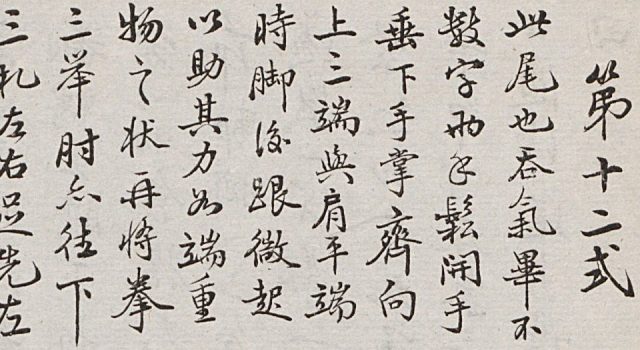 第十二式
此尾也吞氣畢不
數字兩手鬆開手
垂下手掌齊向
上三端與肩平端
時脚後跟微起
以助其力如端重
物之状再將拳
三举肘亦往下
三扎左右足先左